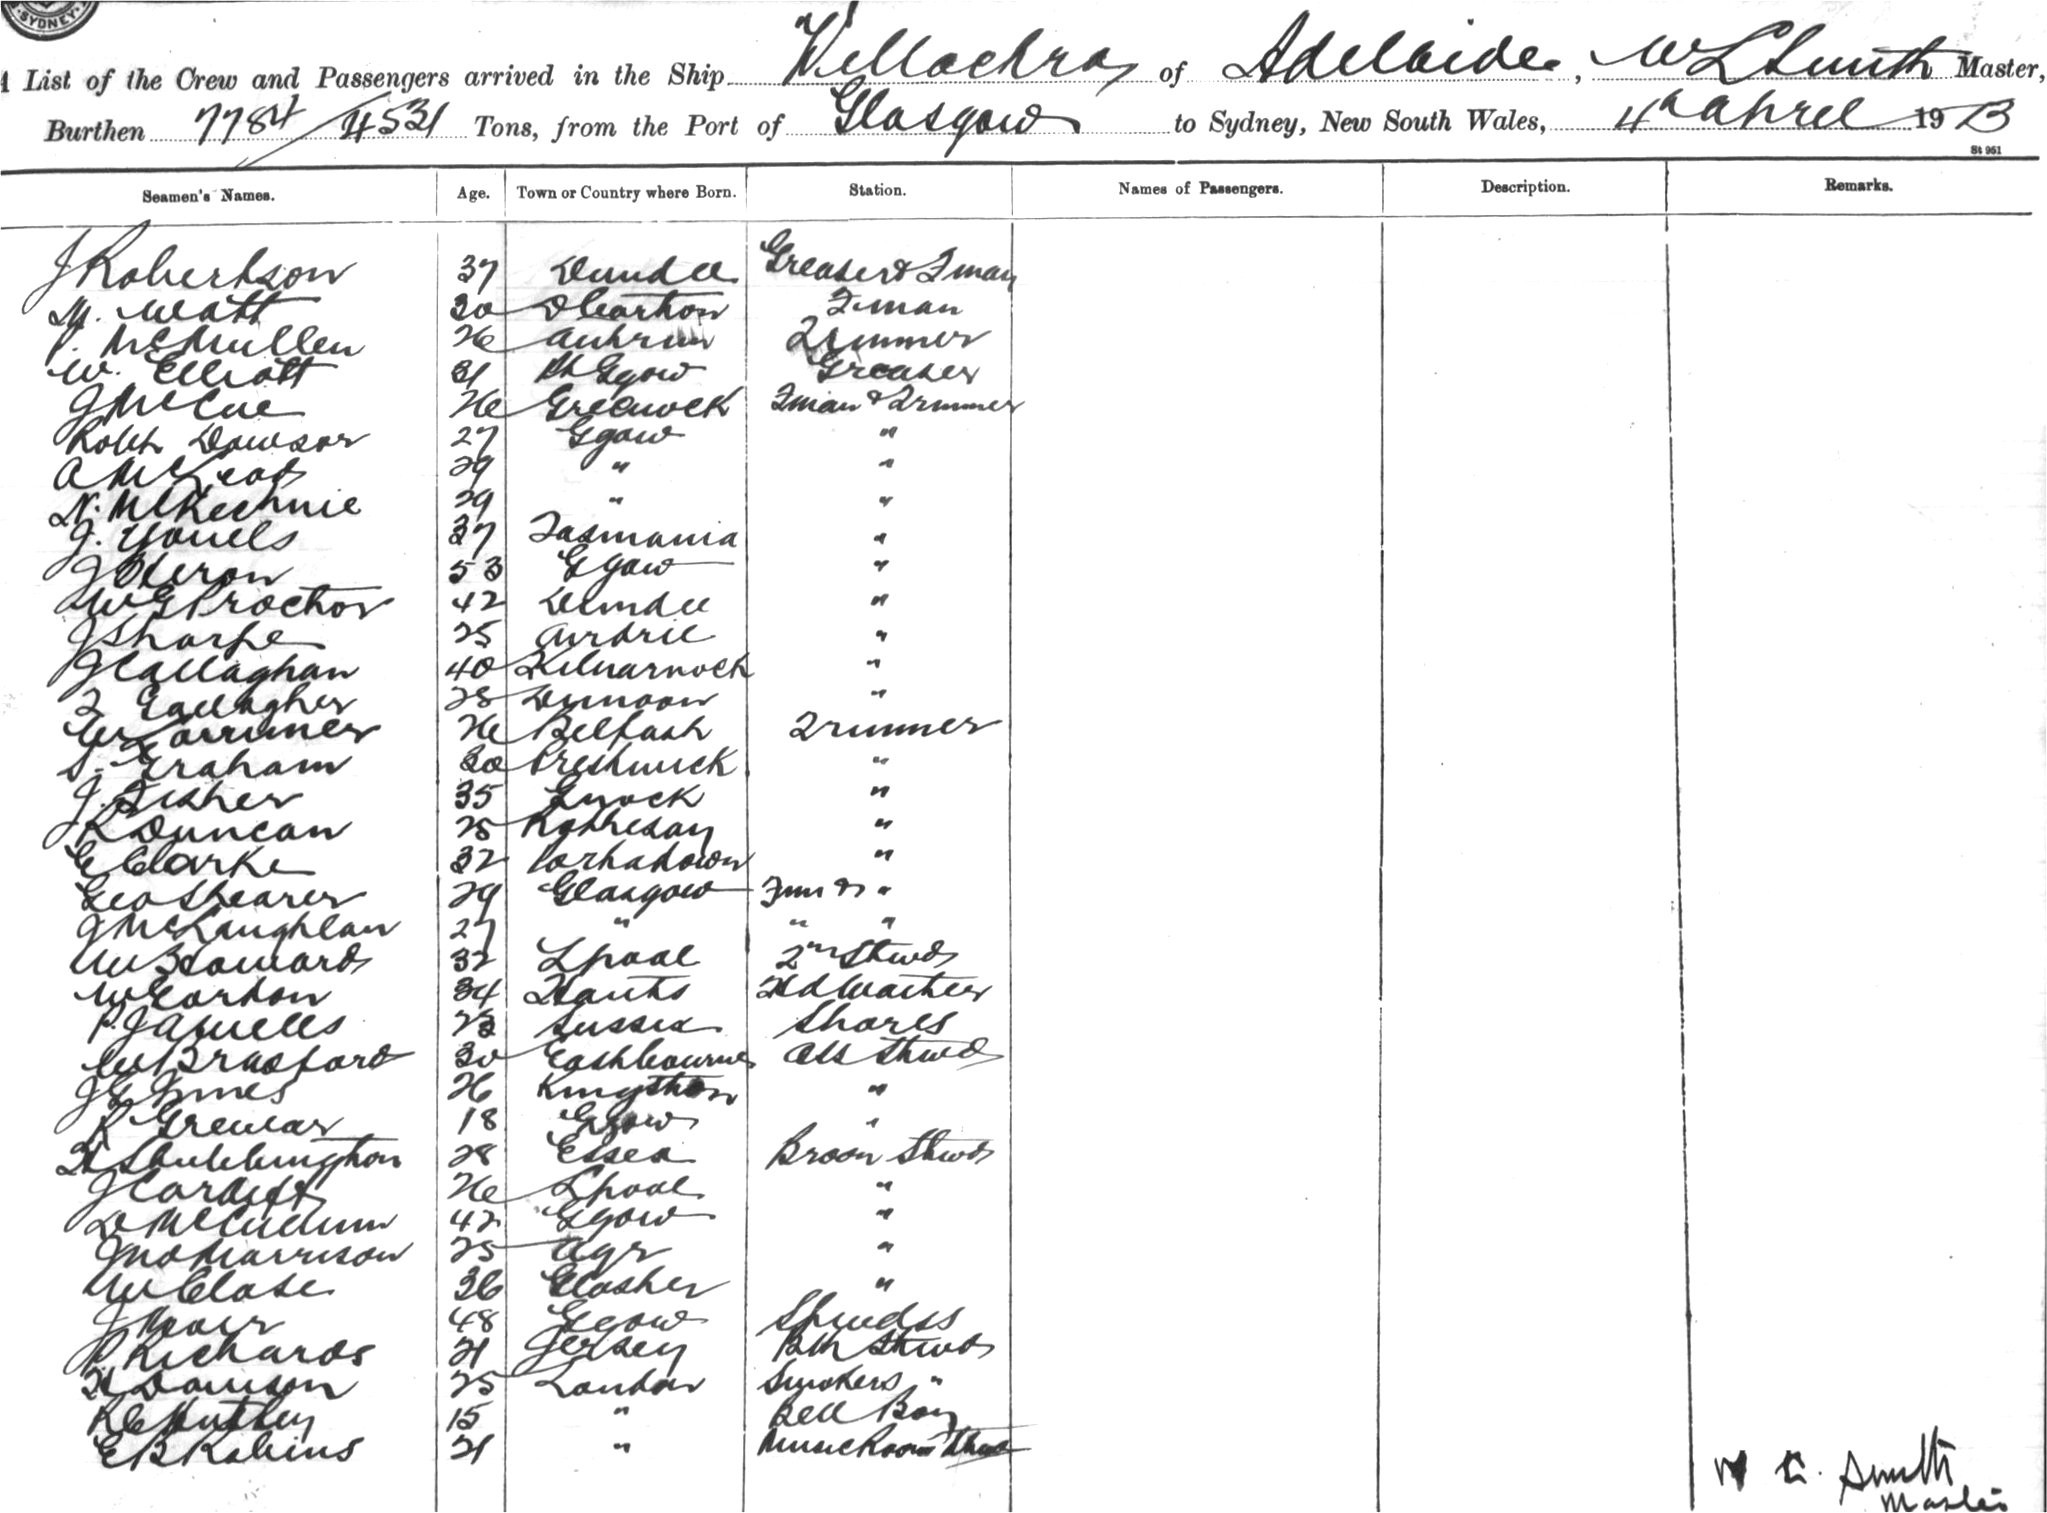 SYDNEY
List of the Crew and Passengers arrived in the Ship Willochra of Adelaide, W L Smith Master,
Burthen 7784/4531 Tons, from the Port of Glasgow to Sydney, New South Wales, 4th April 1913
St 951
Seamen's Names. Age. Town or Country where Born. Station. Names of Passengers. Description. Remarks.
J Robertson 37 Dundee Greaser & Fman
M. Watt 30 Fman
P. McMullen 26 Antrim Trimmer
W. Elliott 31 Pt Ggow Greaser
J McCue 26 Greenock Fman & Trimmer
Robt Dawson 27 Ggow "
A McLeod 29 " "
N. McKechnie 29 " "
J. Youells 37 Tasmania "
J Heron 53 Ggow "
W G Proctor 42 Dundee "
J Sharpe 25 Airdrie "
J Callaghan 40 Kilmarnock "
T Gallagher 28 Dunoon "
W 26 Belfast Trimmer
S. Graham 30 Prestwick "
J. Fisher 35 Gnock "
R Duncan 25 Rothesay "
C Clarke 32 Portadown "
Geo Shearer 29 Glasgow Fmn & "
J McLaughlan 27 " " "
W Howard 32 Lpool 2nd Stwd
W Gordon 34 Hants Hd Waiter
P. J A Wells 23 Sussex Stores
W Bradford 30 Eastbourne Ass Stwd
J G Innes 26 Kingston "
R Grewar 18 Ggow "
H Stubbington 28 Essex Broom Stwd
J Cardiff 26 Lpool "
D McCullum 42 Ggow "
Jno Marrison 25 Ayr "
W Close 36 "
J Moair 48 Ggow Stwdss
P Richards 21 Jersey Bth Stwd
H Dawson 25 London Smokers "
R C Huttley 15 " Bell Boy
E B Robins 21 " Music Room Stwd
W L. Smith
Master